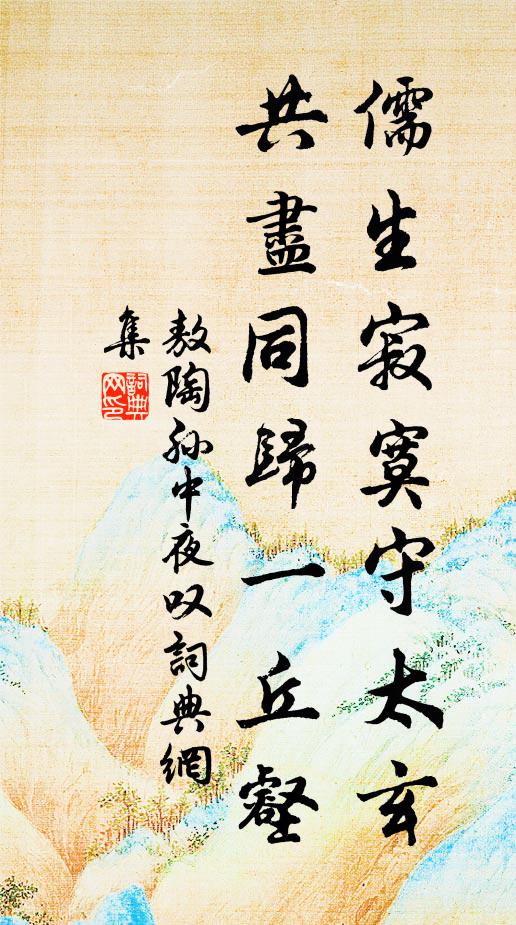 儒生寂寞守太玄
共盡同歸一丘壑
敖陶孙中夜叹詞典網
集
詞典
网印